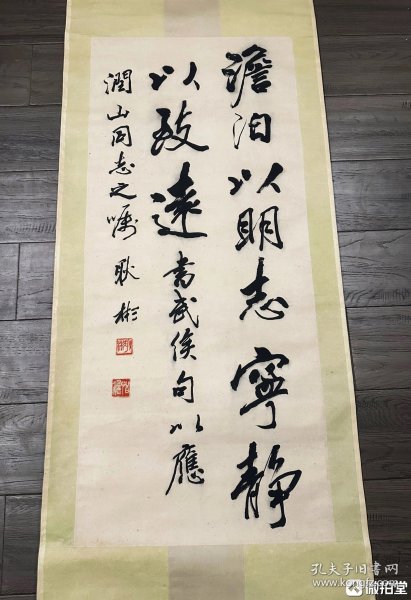 澹泊以明志寧靜
以致遠 書武侯句以應
潤山同志之嘱 耿彬
孔夫子旧书网
www.kongfz.com
微拍堂